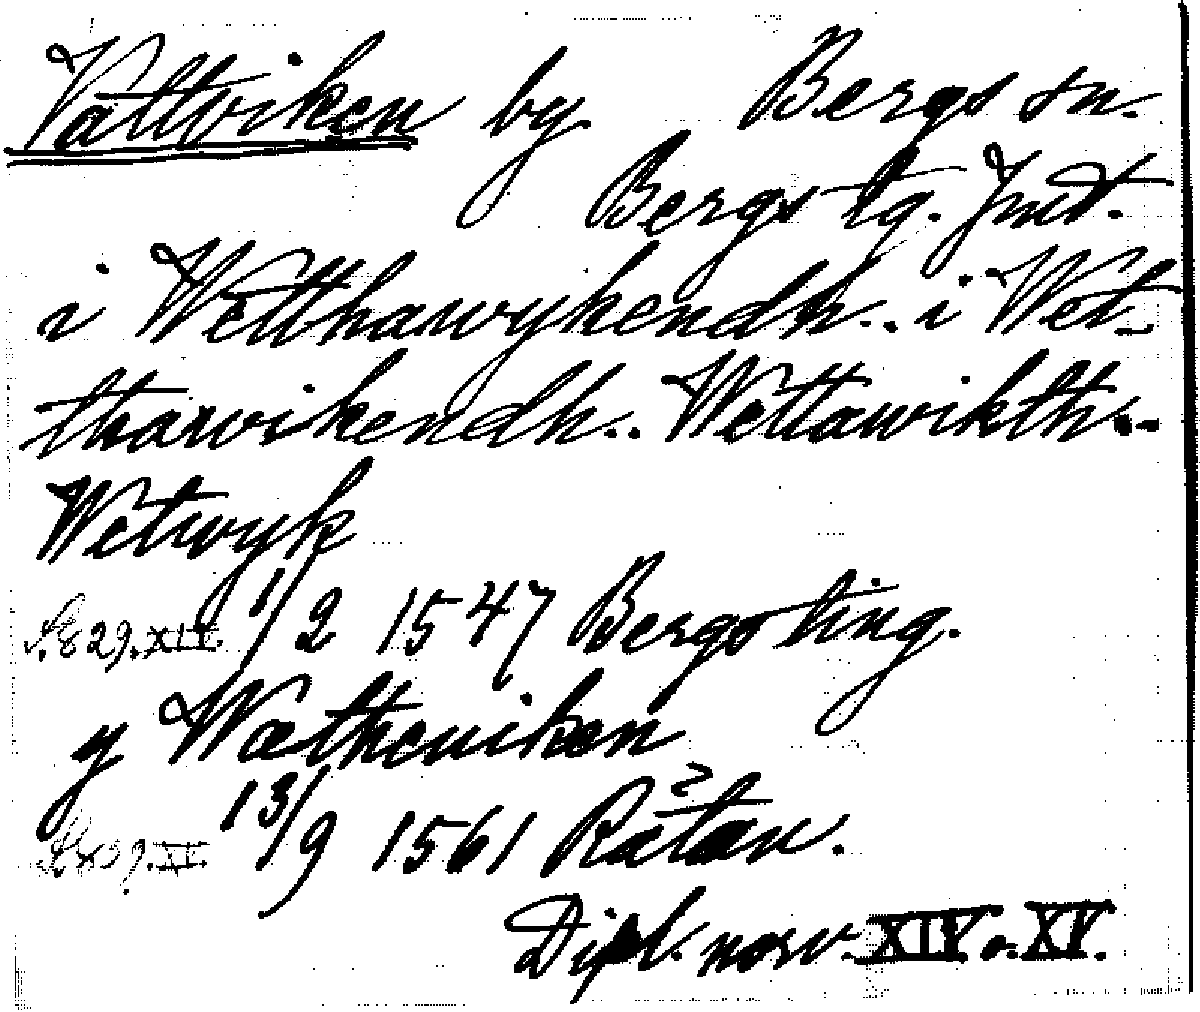 Vattviken by Bergs sn.
Bergs tg. Jmt.
i Wetthawykendh.. i Wet-
thawikendh.. Wettawikth..
Wetwyk
1/2 1547 Bergs ting.
y Wætheuiken
13/9 1561 Rätan.
Dipl. norv. XIV o. XV.